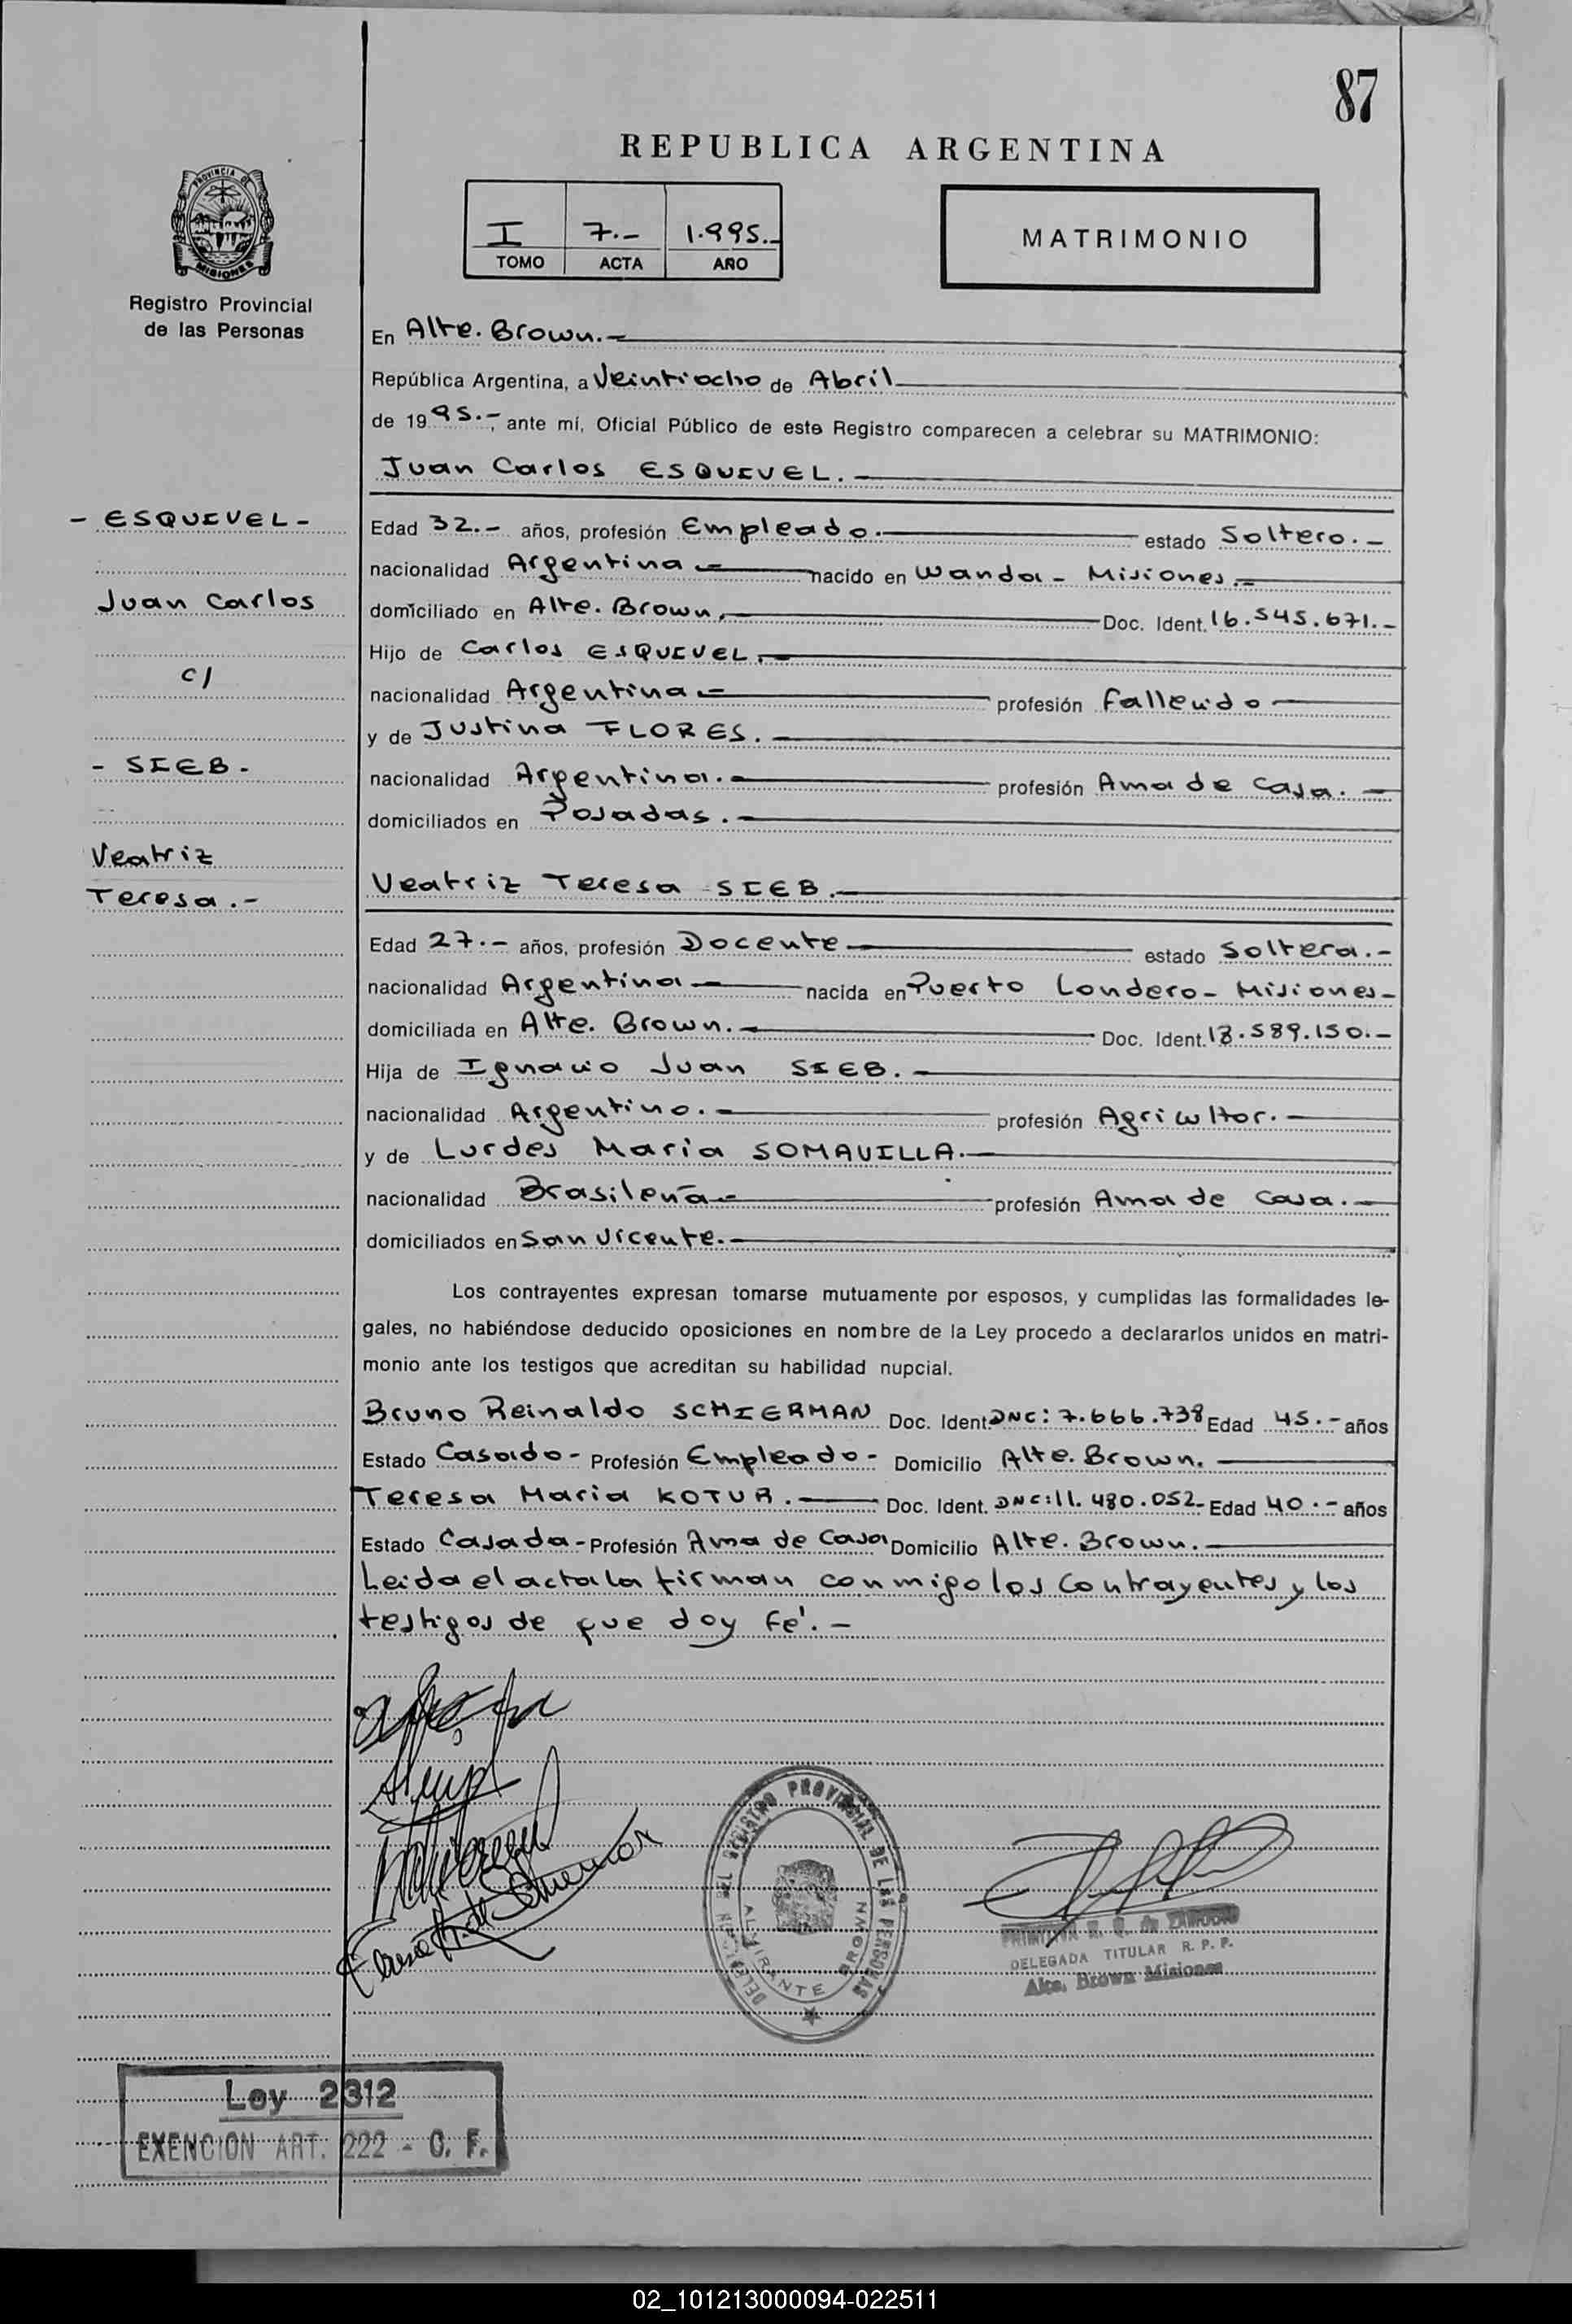 87
REPUBLICA ARGENTINA
PROVINCIA DE MISIONES
Registro Provincial
de las Personas
I 7.- 1.995.-
TOMO ACTA AÑO
MATRIMONIO
En Alte. Brown.-
República Argentina, a Veintiocho de Abril
de 1995.-, ante mí, Oficial Público de este Registro comparecen a celebrar su MATRIMONIO:
Juan Carlos ESQUIVEL.-
- ESQUIVEL -
Juan Carlos
c/
- SIEB -
Veatriz
Teresa.-
Edad 32.- años, profesión Empleado.- estado Soltero.-
nacionalidad Argentina.- nacido en Wanda - Misiones.-
domiciliado en Alte. Brown.- Doc. Ident. 16.545.671.-
Hijo de Carlos ESQUIVEL.-
nacionalidad Argentina.- profesión Fallecido
y de Justina FLORES.-
nacionalidad Argentina.- profesión Ama de Casa.-
domiciliados en Posadas.-
Veatriz Teresa SIEB.-
Edad 27.- años, profesión Docente estado Soltera.-
nacionalidad Argentina nacida en Puerto Londero - Misiones -
domiciliada en Alte. Brown.- Doc. Ident. 18.589.150.-
Hija de Ignacio Juan SIEB.-
nacionalidad Argentino.- profesión Agricultor.-
y de Lurdes Maria SOMAVILLA.-
nacionalidad Brasileña- profesión Ama de Casa.-
domiciliados en San Vicente.-
Los contrayentes expresan tomarse mutuamente por esposos, y cumplidas las formalidades le-
gales, no habiéndose deducido oposiciones en nombre de la Ley procedo a declararlos unidos en matri-
monio ante los testigos que acreditan su habilidad nupcial.
Bruno Reinaldo SCHIERMAN Doc. Ident. DNC: 7.666.738 Edad 45.- años
Estado Casado - Profesión Empleado - Domicilio Alte. Brown.
Teresa Maria KOTUR.- Doc. Ident. DNC: 11.480.052- Edad 40.- años
Estado Casada - Profesión Ama de Casa Domicilio Alte. Brown.-
Leida el acta la firman conmigo los Contrayentes y los
testigos de que doy Fé.-
REGISTRO PROVINCIAL DE LAS PERSONAS
ALMIRANTE BROWN
DELEGADA TITULAR R. P. P.
Alte. Brown Misiones
Ley 2312
EXENCION ART. 222 - C. F.
02_101213000094-022511